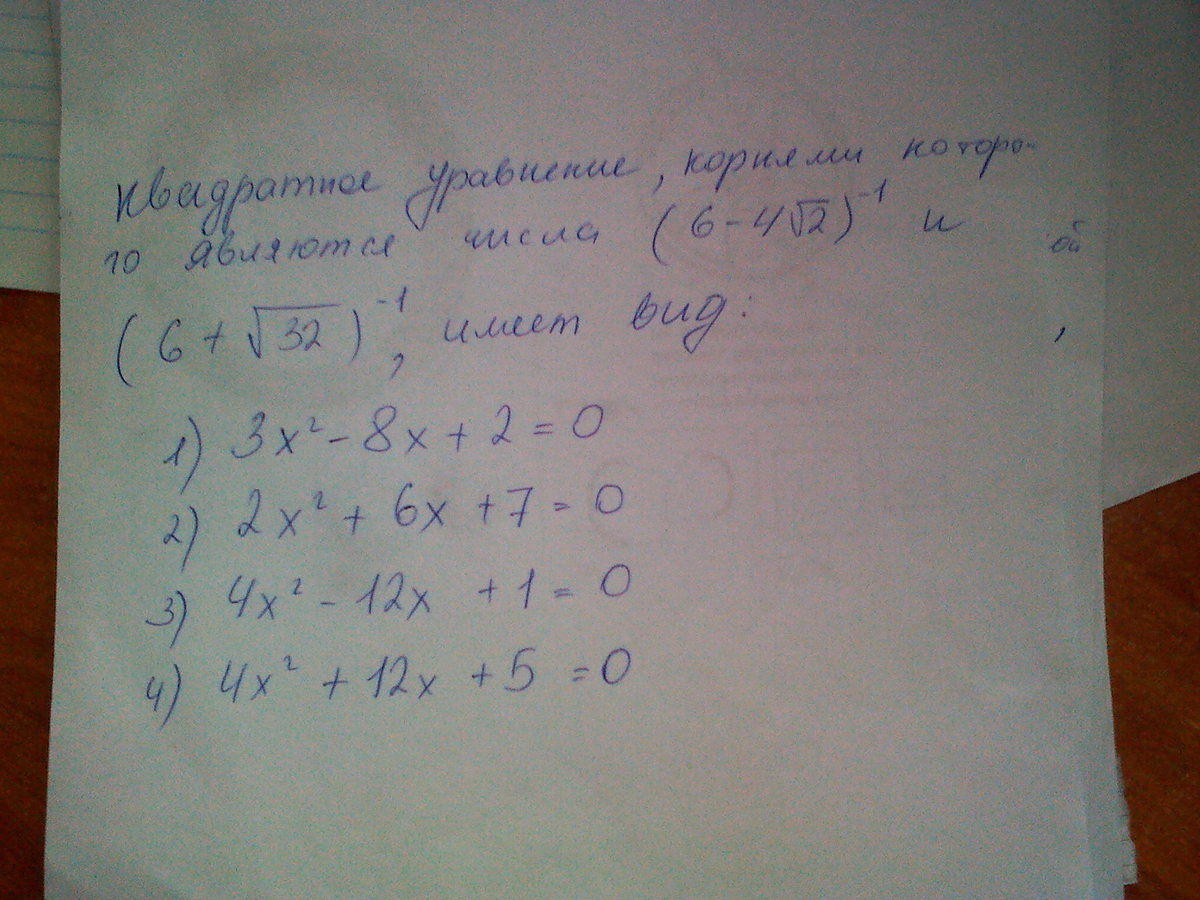 Квадратное уравнение, корнями которо-
го являются числа (6-4√2)⁻¹ и
ой
(6+√32)⁻¹, имеет вид:
,
1) 3x²-8x+2=0
2) 2x²+6x+7=0
3) 4x²-12x+1=0
4) 4x²+12x+5=0